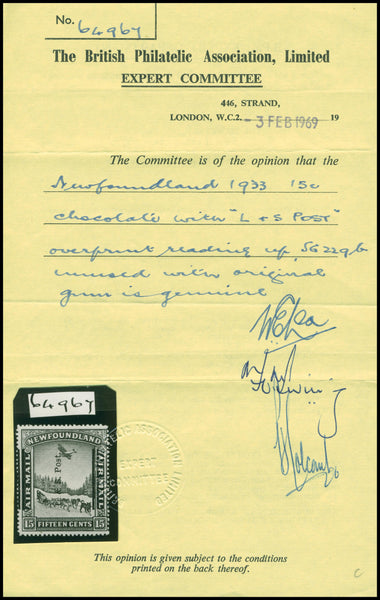 No. 64967
The British Philatelic Association, Limited
EXPERT COMMITTEE
446, STRAND,
LONDON, W.C.2. - 3 FEB 1969 19
The Committee is of the opinion that the
Newfoundland 1933 15c
chocolate with "L & S POST"
overprint reading up, SG229b
unused with original
gum is genuine
64967
NEWFOUNDLAND
AIR MAIL
AIR MAIL
Post
15 FIFTEEN CENTS 15
EXPERT
COMMITTEE
ASSOCIATION LIMITED
This opinion is given subject to the conditions
printed on the back thereof.
c